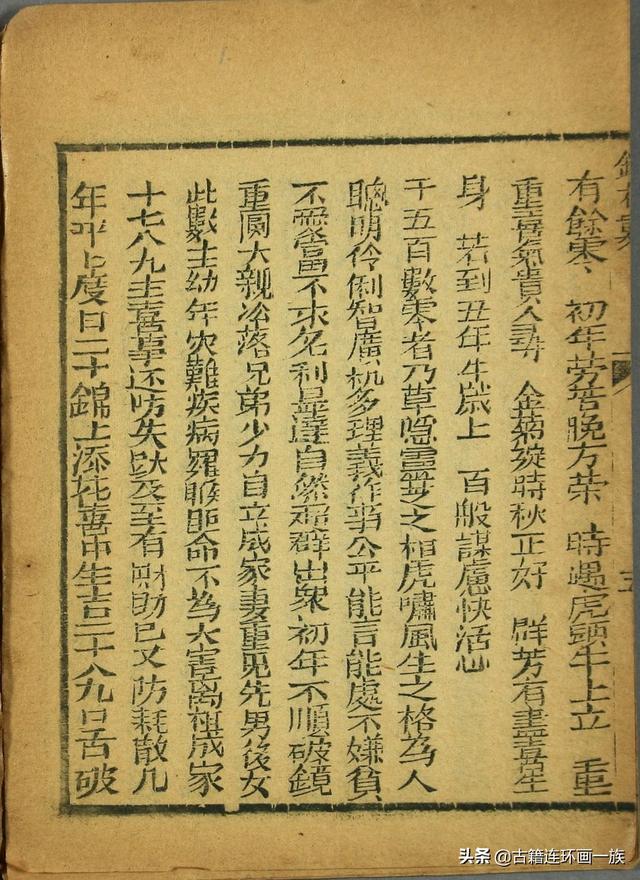 有餘零 初年劳苦晚方荣 時遇虎頭牛上立 重
重喜氣貴人尋 金菊綻時秋正好 群芳有書喜生
身 若到丑年牛歲上 百般謀慮快活心
千五百數零者乃草隐靈芝之相虎嘯風生之格為人
聰明伶俐智廣机多理義作事公平能言能處不嫌貧
不愛富不求名利显達自然超群出衆初年不順破鏡
重圓大親冷落兄弟少力自立成家妻重見先男後女
此數主幼年灾難疾病羅睺距命不為大害离祖成家
十七八九主喜事还防失欤及至有財助巳又防耗散几
年平上度日二十錦上添花喜中生吉二十八九口舌破
五
头条 @古籍连环画一族